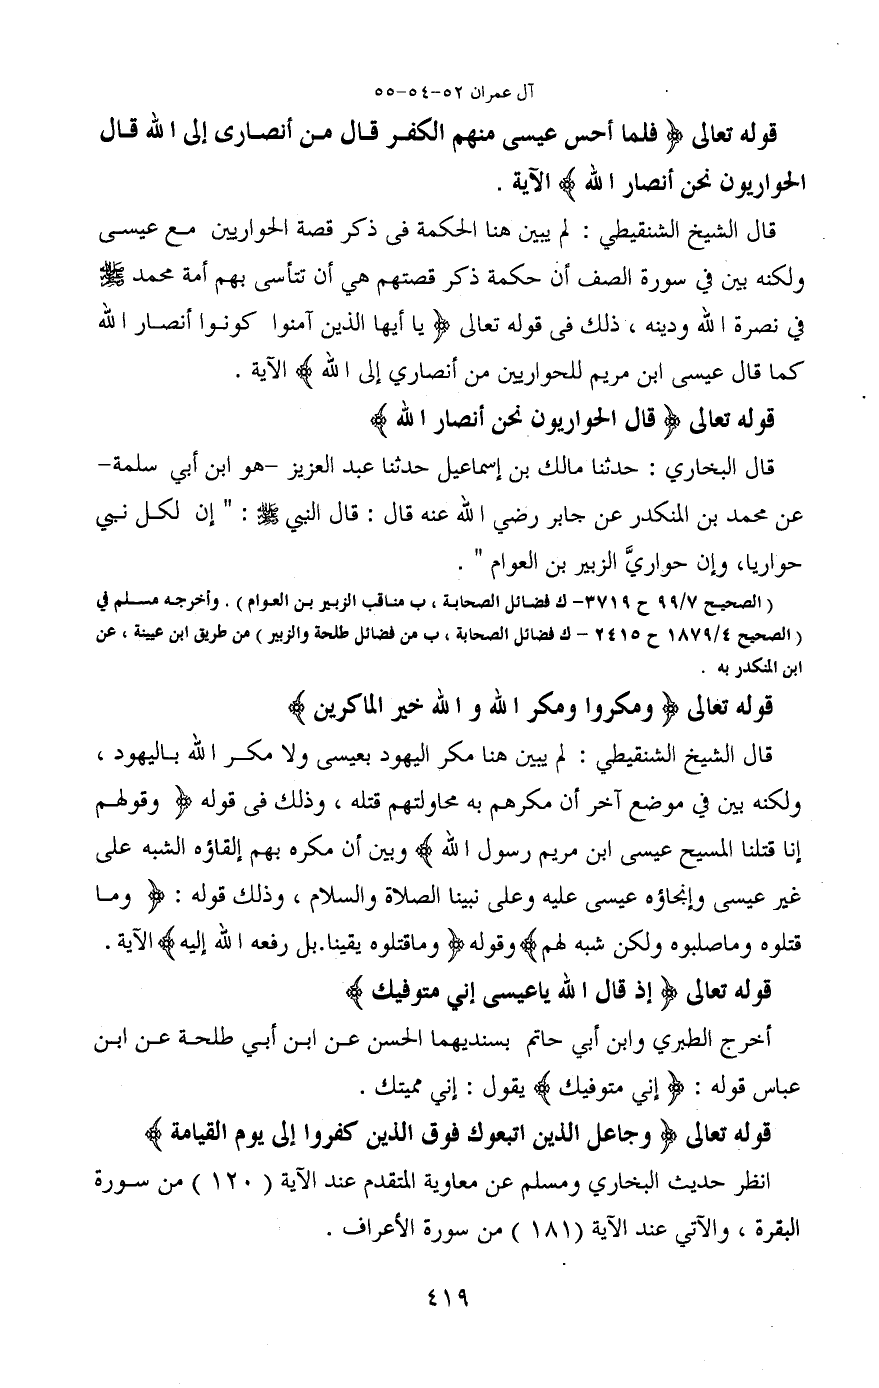 آل عمران ٥٢-٥٤-٥٥
قوله تعالى ﴿ فلما أحس عيسى منهم الكفر قال من أنصارى إلى الله قال
الحواريون نحن أنصار الله ﴾ الآية .
قال الشيخ الشنقيطي : لم يبين هنا الحكمة فى ذكر قصة الحواريين مع عيسى
ولكنه بين في سورة الصف أن حكمة ذكر قصتهم هي أن تتأسى بهم أمة محمد ﷺ
في نصرة الله ودينه ، ذلك فى قوله تعالى ﴿ يا أيها الذين آمنوا كونوا أنصار الله
كما قال عيسى ابن مريم للحواريين من أنصاري إلى الله ﴾ الآية .
قوله تعالى ﴿ قال الحواريون نحن أنصار الله ﴾
قال البخاري : حدثنا مالك بن إسماعيل حدثنا عبد العزيز -هو ابن أبي سلمة-
عن محمد بن المنكدر عن جابر رضي الله عنه قال : قال النبي ﷺ : " إن لكل نبي
حواريا، وإن حواريَّ الزبير بن العوام " .
( الصحيح ٩٩/٧ ح ٣٧١٩- ك فضائل الصحابة ، ب مناقب الزبير بن العوام ) . وأخرجه مسلم في
( الصحيح ١٨٧٩/٤ ح ٢٤١٥ - ك فضائل الصحابة ، ب من فضائل طلحة والزبير ) من طريق ابن عيينة ، عن
ابن المنكدر به .
قوله تعالى ﴿ ومكروا ومكر الله والله خير الماكرين ﴾
قال الشيخ الشنقيطي : لم يبين هنا مكر اليهود بعيسى ولا مكر الله باليهود ،
ولكنه بين في موضع آخر أن مكرهم به محاولتهم قتله ، وذلك فى قوله ﴿ وقولهم
إنا قتلنا المسيح عيسى ابن مريم رسول الله ﴾ وبين أن مكره بهم إلقاؤه الشبه على
غير عيسى وإنجاؤه عيسى عليه وعلى نبينا الصلاة والسلام ، وذلك قوله : ﴿ وما
قتلوه وماصلبوه ولكن شبه لهم﴾ وقوله﴿ وماقتلوه يقينا.بل رفعه الله إليه﴾ الآية .
قوله تعالى ﴿ إذ قال الله ياعيسى إني متوفيك ﴾
أخرج الطبري وابن أبي حاتم بسنديهما الحسن عن ابن أبي طلحة عن ابن
عباس قوله : ﴿ إني متوفيك ﴾ يقول : إني مميتك .
قوله تعالى ﴿ وجاعل الذين اتبعوك فوق الذين كفروا إلى يوم القيامة ﴾
انظر حديث البخاري ومسلم عن معاوية المتقدم عند الآية ( ١٢٠ ) من سورة
البقرة ، والآتي عند الآية (١٨١ ) من سورة الأعراف .
٤١٩